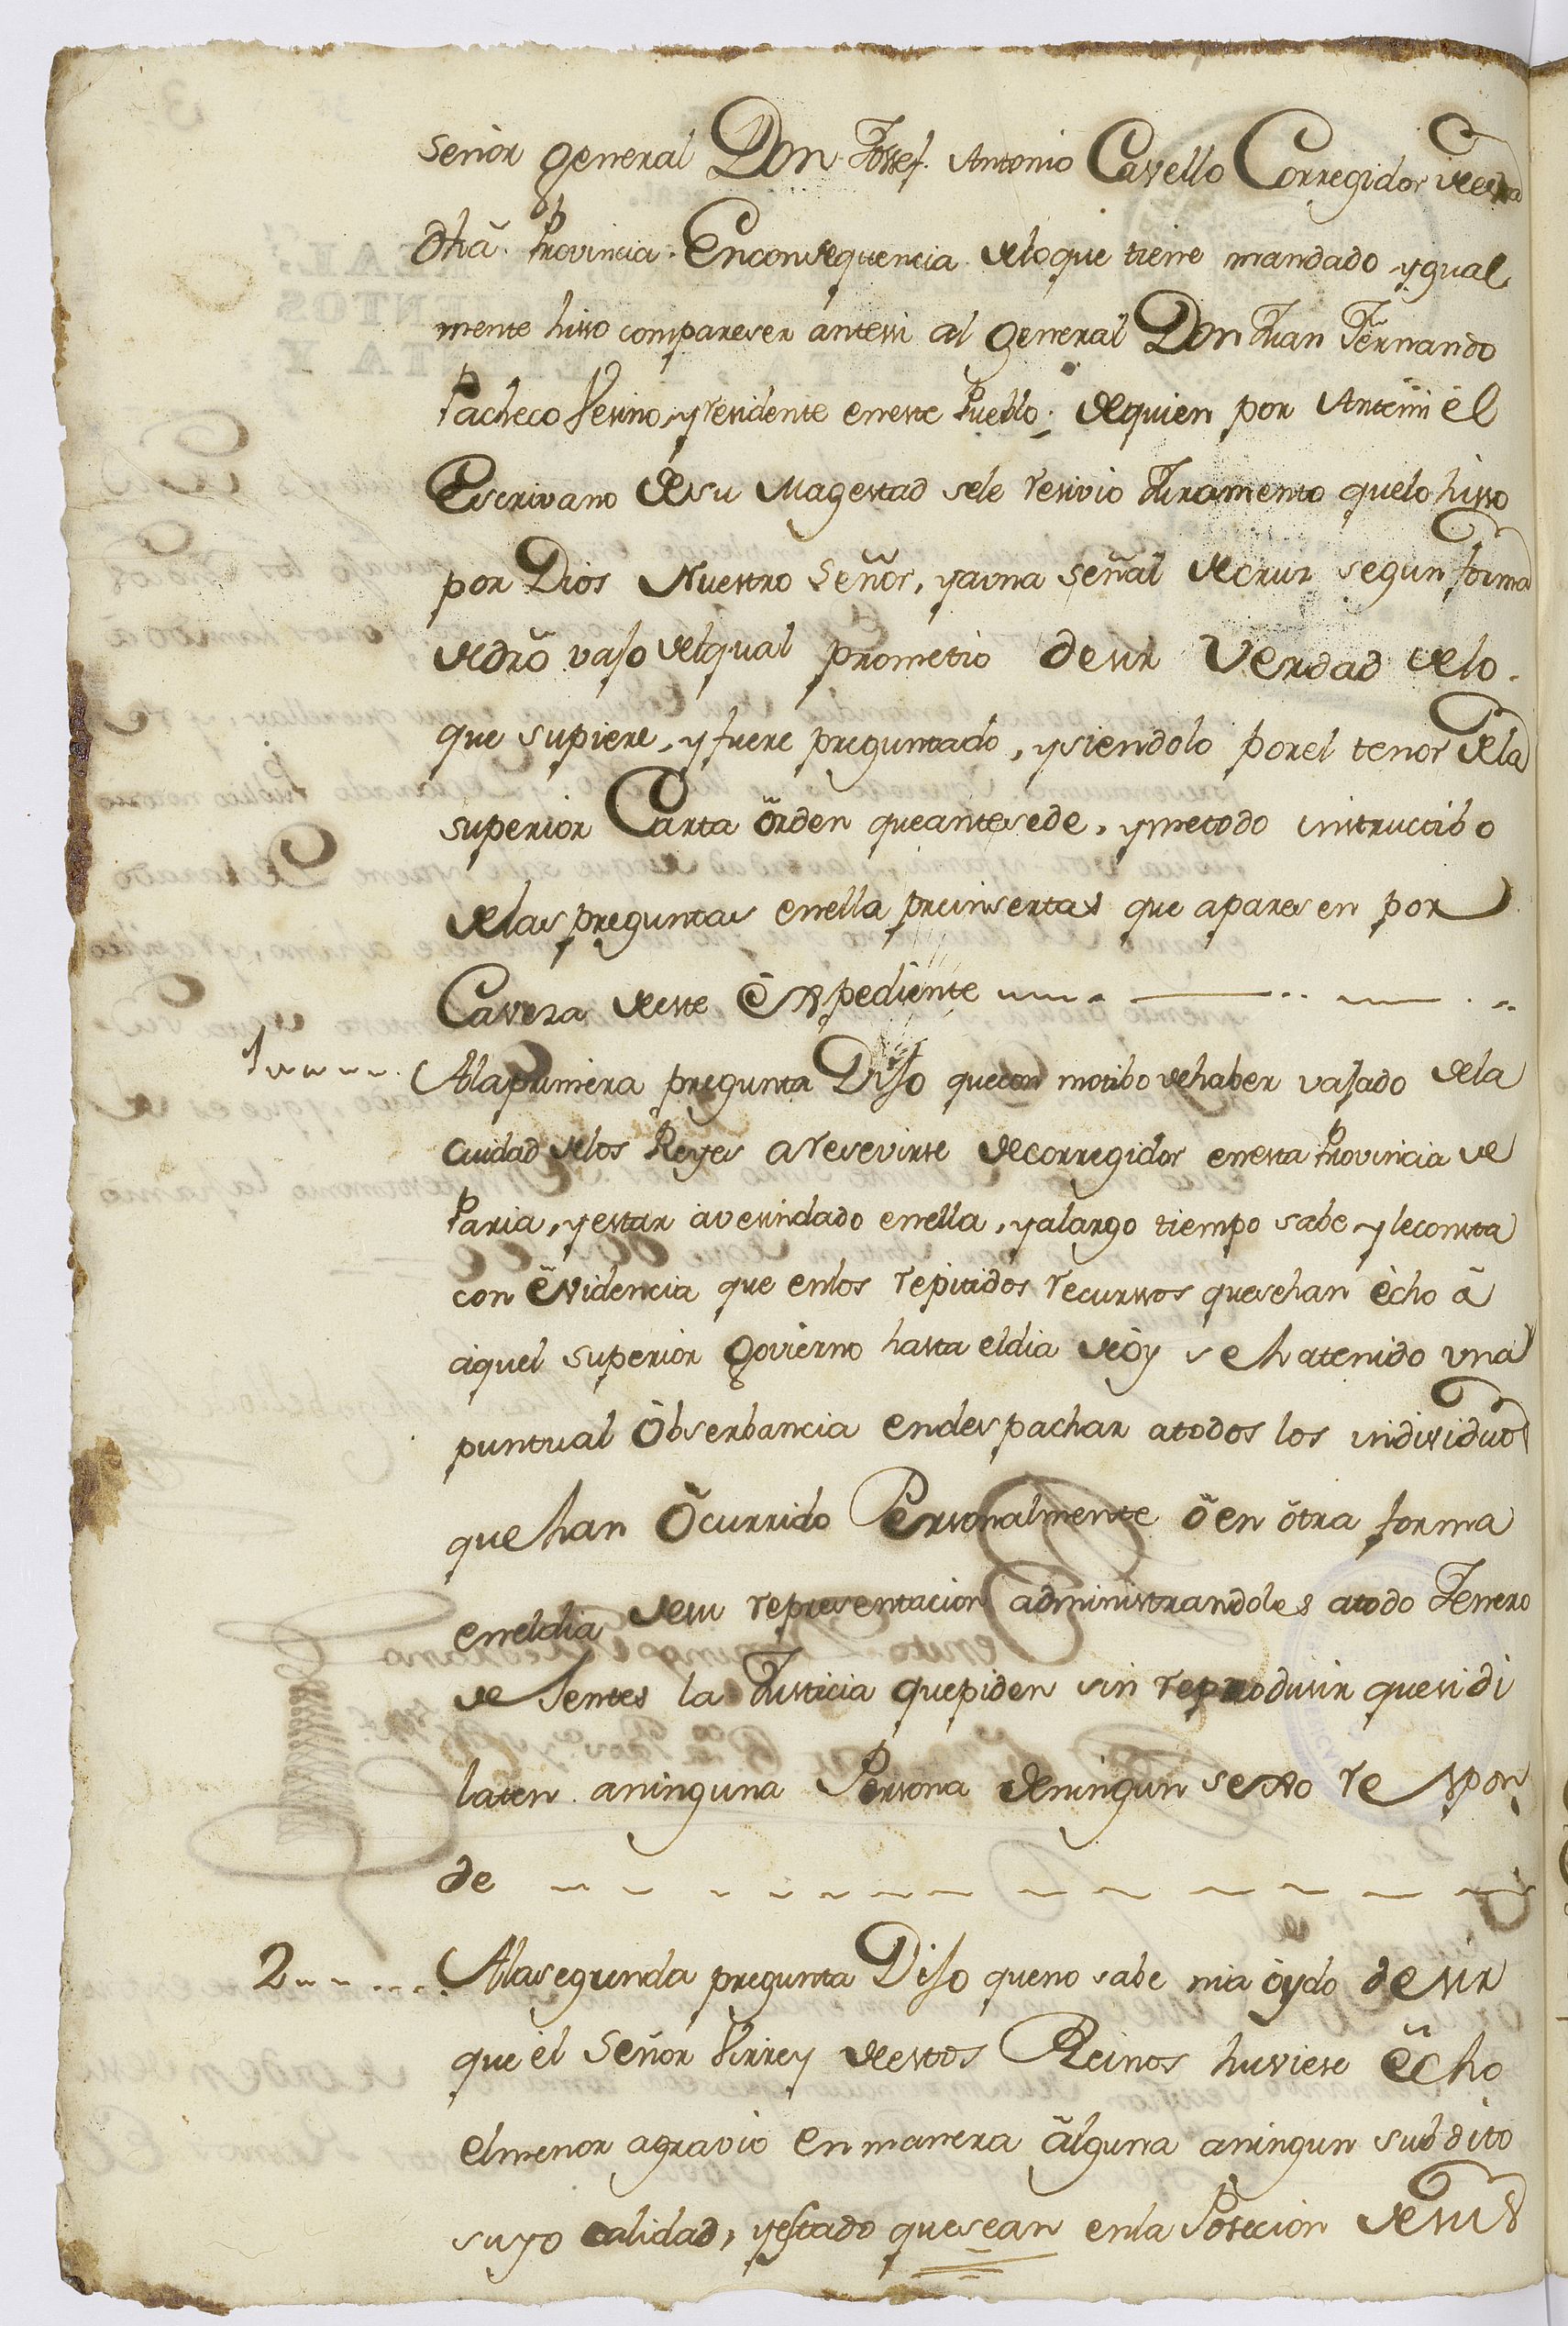 Señor General Don Jossef Antonio Cavello Corregidor de esta
dha Provincia. En consequencia de lo que tiene mandado ygual
mente hisso compareser antessi al General Don Juan Fernando
Pacheco Vesino, y residente en este Pueblo; de quien por Antemi él
Escrivano de su Magestad sele resivio Juramento que lo hisso
por Dios Nuestro Señor, y a una señal de cruz segun forma
de dro vajo del qual prometio desir Verdad de lo
que supiere, y fuere preguntado, y siendolo por el tenor de la
superior Carta órden que antesede, y metodo instructibo
de las preguntas en ella preinsertas que aparesen por
Cavesa de este Expediente
1 A la primera pregunta Dijo que con motibo de haber vajado de la
Ciudad de los Reyes a resevirse de corregidor en esta Provincia de
Paria, y estar avesindado en ella, ya largo tiempo sabe y le consta
con evidencia que en los repitidos recurssos que se han echo á
aquel superior Govierno hasta el dia de oy se ha tenido una
puntual Obserbancia en despachar a todos los individuos
que han Ocurrido Perssonalmente ó en otra forma
en el dia de su representacion administrandoles a todo Jenero
de Jentes la Justicia que piden sin reprodusir que si di
laten a ninguna Perssona de ningun sexso respon
de
2 A la segunda pregunta Dijo que no sabe ni a óydo desir
que él Señor Virrey de estos Reinos huviese echo
el menor agravio en manera alguna a ningun subdito
suyo calidad, y estado que sean en la Posecion de sus